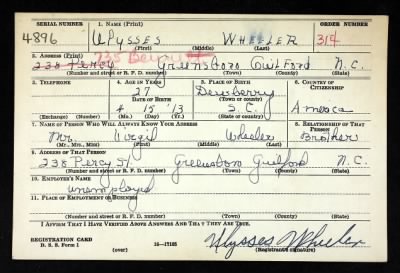 SERIAL NUMBER 1. NAME (Print) ORDER NUMBER
4896 ULYSSES WHEELER 314
(First) (Middle) (Last)
735
2. ADDRESS (Print)
238 Percy Greensboro Guilford N.C.
(Number and street or R. F. D. number) (Town) (County) (State)
3. TELEPHONE 4. AGE IN YEARS 5. PLACE OF BIRTH 6. COUNTRY OF CITIZENSHIP
27 Dewberry
DATE OF BIRTH (Town or county)
4 15 '13 S.C. America
(Exchange) (No.) (Mo.) (Day) (Yr.) (State or country)
7. NAME OF PERSON WHO WILL ALWAYS KNOW YOUR ADDRESS 8. RELATIONSHIP OF THAT PERSON
Mr. Virgil Wheeler Brother
(Mr., Mrs., Miss) (First) (Middle) (Last)
9. ADDRESS OF THAT PERSON
238 Percy St. Greensboro Guilford N.C.
(Number and street or R. F. D. number) (Town) (County) (State)
10. EMPLOYER'S NAME
unemployed
11. PLACE OF EMPLOYMENT OR BUSINESS
(Number and street or R. F. D. number) (Town) (County) (State)
I AFFIRM THAT I HAVE VERIFIED ABOVE ANSWERS AND THAT THEY ARE TRUE.
REGISTRATION CARD
D. S. S. Form 1 (over) 16—17105 Ulysses Wheeler
(Registrant's signature)